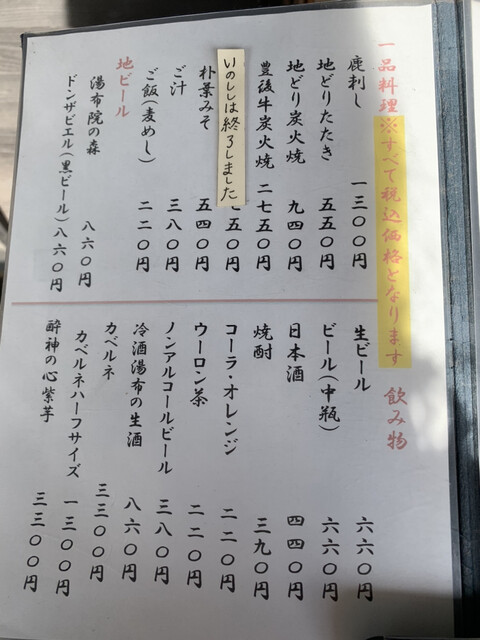 一品料理※すべて税込価格となります
鹿刺し 一三〇〇円
地どりたたき 五五〇円
地どり炭火焼 九四〇円
豊後牛炭火焼 二七五〇円
いのししは終了しました
五〇円
朴葉みそ 五四〇円
ご汁 三八〇円
ご飯(麦めし) 二二〇円
地ビール
湯布院の森 八六〇円
ドンザビエル(黒ビール)八六〇円
飲み物
生ビール 六六〇円
ビール(中瓶) 六六〇円
日本酒 四四〇円
焼酎 三九〇円
コーラ・オレンジ 二二〇円
ウーロン茶 二二〇円
ノンアルコールビール 三八〇円
冷酒湯布の生酒 八六〇円
カベルネ 三三〇〇円
カベルネハーフサイズ 一三〇〇円
酔神の心紫芋 三三〇〇円